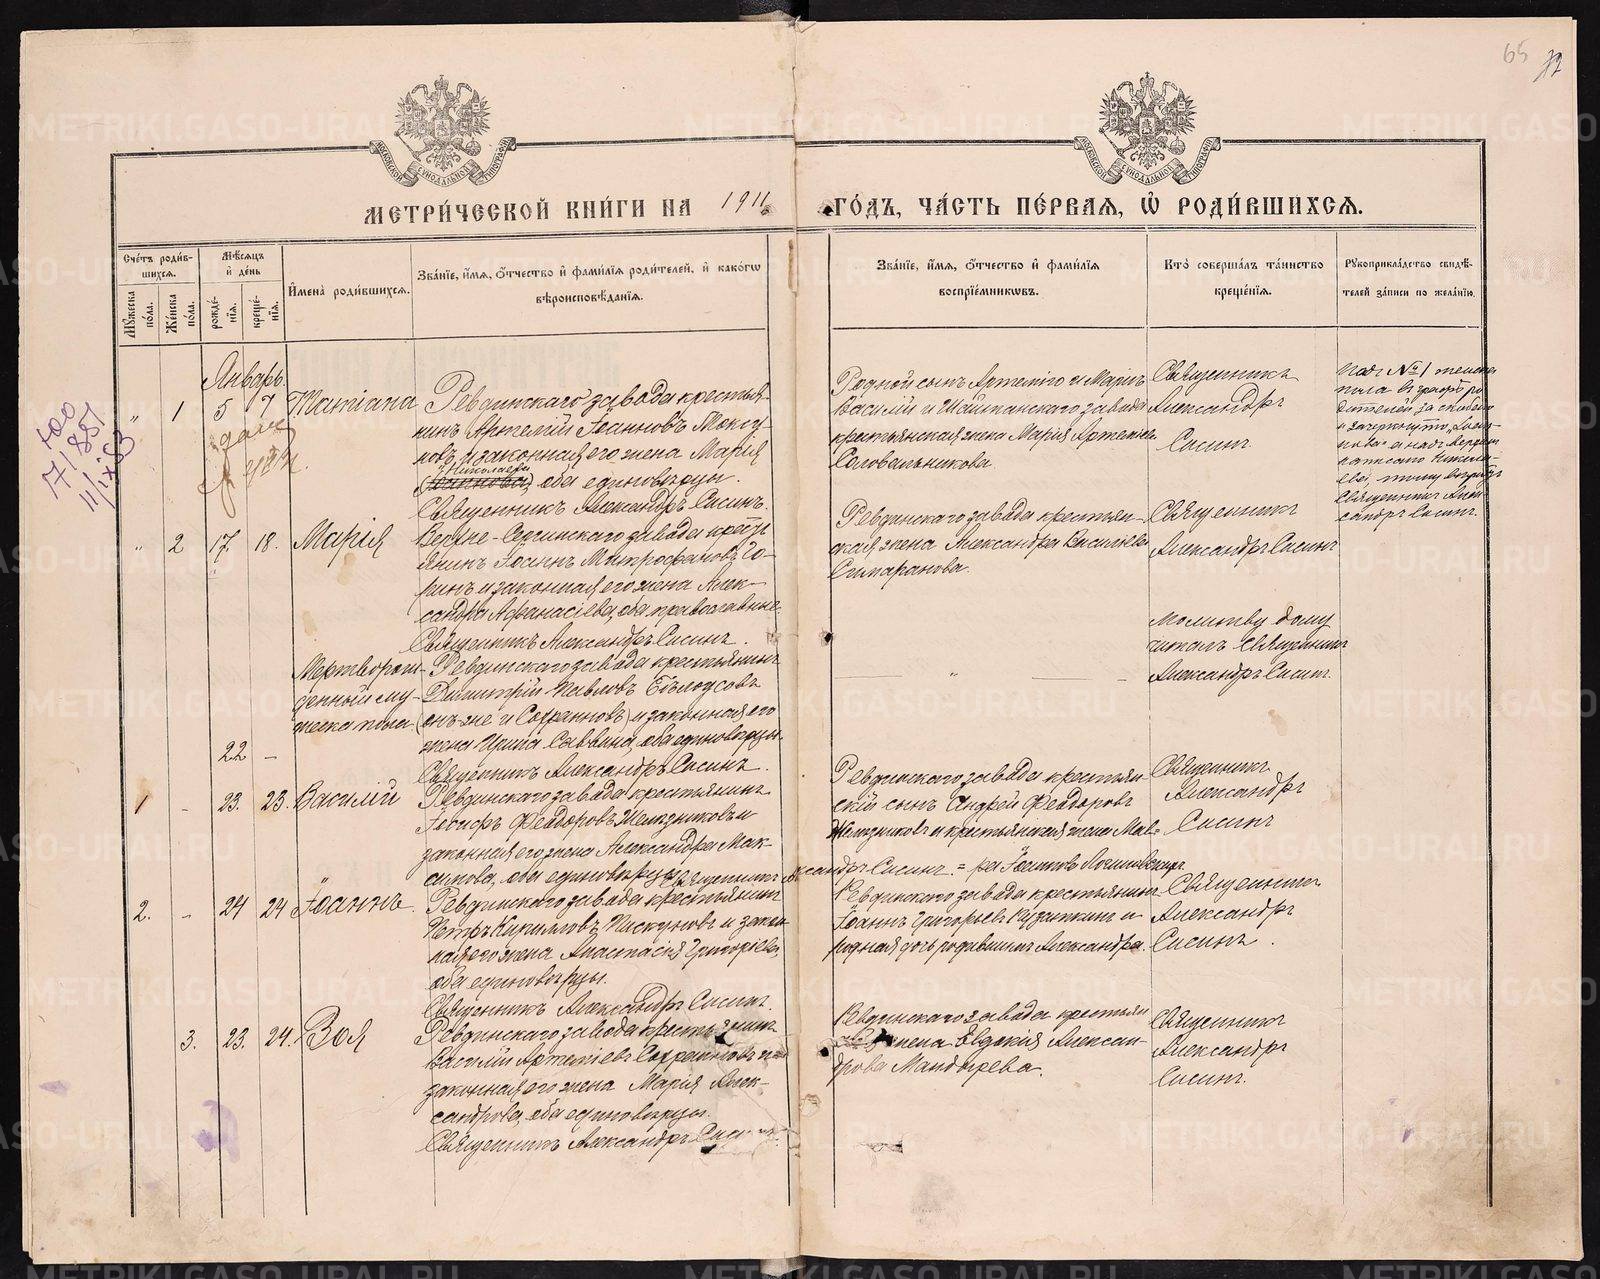 65
МЕТРИ́ЧЕСКОЙ КНИ́ГИ НА 1911
ГО́ДЪ, ЧА́СТЬ ПЕ́РВАЯ, Ѡ҆ РОДИ́ВШИХСЯ.
МОСКОВСКОЙ СУНОДАЛЬНОЙ ТИПОГРАФІИ
МОСКОВСКОЙ СУНОДАЛЬНОЙ ТИПОГРАФІИ
Сче́тъ роди́в-
шихся.
Мꙋ́жеска по́ла.
Же́нска по́ла.
Мѣ́сяцъ
и҆ де́нь
рожде́-
нїя.
креще́-
нїя.
И҆мена̀ роди́вшихся.
Зва́нїе, и҆́мя, ѻ҆́тчество и҆ фами́лїя роди́телей, и҆ како́гѡ
вѣроисповѣ́данїя.
Зва́нїе, и҆́мя, ѻ҆́тчество и҆ фами́лїя
воспрїе́мникѡвъ.
Кто̀ соверша́лъ та́инство
креще́нїя.
Рꙋкоприкла́дство свидѣ́-
телей за́писи по жела́нїю.
Январь.
" 1 5 7 Татіана
Ревдинскаго завода крестья-
нинъ Артемій Іоанновъ Моксу-
новъ и законная его жена Марія
Николаева
(Іоаннова), оба единовѣрцы.
Священникъ Александръ Сисинъ.
Родной сынъ Артемія и Маріи
Василій и Шайтанскаго завода
крестьянская жена Марія Артеміева
Соловельникова.
Священникъ
Александръ
Сисинъ
" 2 17. 18. Марія
Верхне-Сергинскаго завода кресть-
янинъ Іоаннъ Митрофановъ Го-
ринъ и законная его жена Алек-
сандра Аѳанасіева, оба православные.
Священникъ Александръ Сисинъ.
Ревдинскаго завода крестьян-
ская жена Александра Васильева
Священникъ
Александръ Сисинъ
22 –
Мертворож-
денный му-
жеска пола
Ревдинскаго завода крестьянинъ
Димитрій Павловъ Бѣлоусовъ
(онъ-же и Софроновъ) и законная его
жена Ирина Саввина, оба единовѣрцы.
Священникъ Александръ Сисинъ.
Молитву дому
читалъ Священникъ
Александръ Сисинъ.
1 – 23. 23. Василій
Ревдинскаго завода крестьянинъ
Іосифъ Ѳеодоровъ Желѣзниковъ и
законная его жена Александра Мак-
симова, оба единовѣрцы. Священникъ Александръ Сисинъ.
Ревдинскаго завода крестьян-
скій сынъ Андрей Ѳеодоровъ
Желѣзниковъ и крестьянская жена
Священникъ
Александръ
Сисинъ
2. – 24 24 Іоаннъ.
Ревдинскаго завода крестьянинъ
Петръ Кирилловъ Пискуновъ и закон-
ная его жена Анастасія Григорьева,
оба единовѣрцы.
Священникъ Александръ Сисинъ.
Ревдинскаго завода крестьянинъ
Іоаннъ Григорьевъ Кузовкинъ и
родная дочь родившихъ Александра.
Священникъ
Александръ
Сисинъ.
3. 23. 24. Зоя
Ревдинскаго завода крестьянинъ
Василій Артеміевъ Софроновъ и
законная его жена Марія Алек-
сандрова, оба единовѣрцы.
Священникъ Александръ Сисинъ.
Ревдинскаго завода крестьян
жена Евдокія Алексан-
дрова Мандырева.
Священникъ
Александръ
Сисинъ.